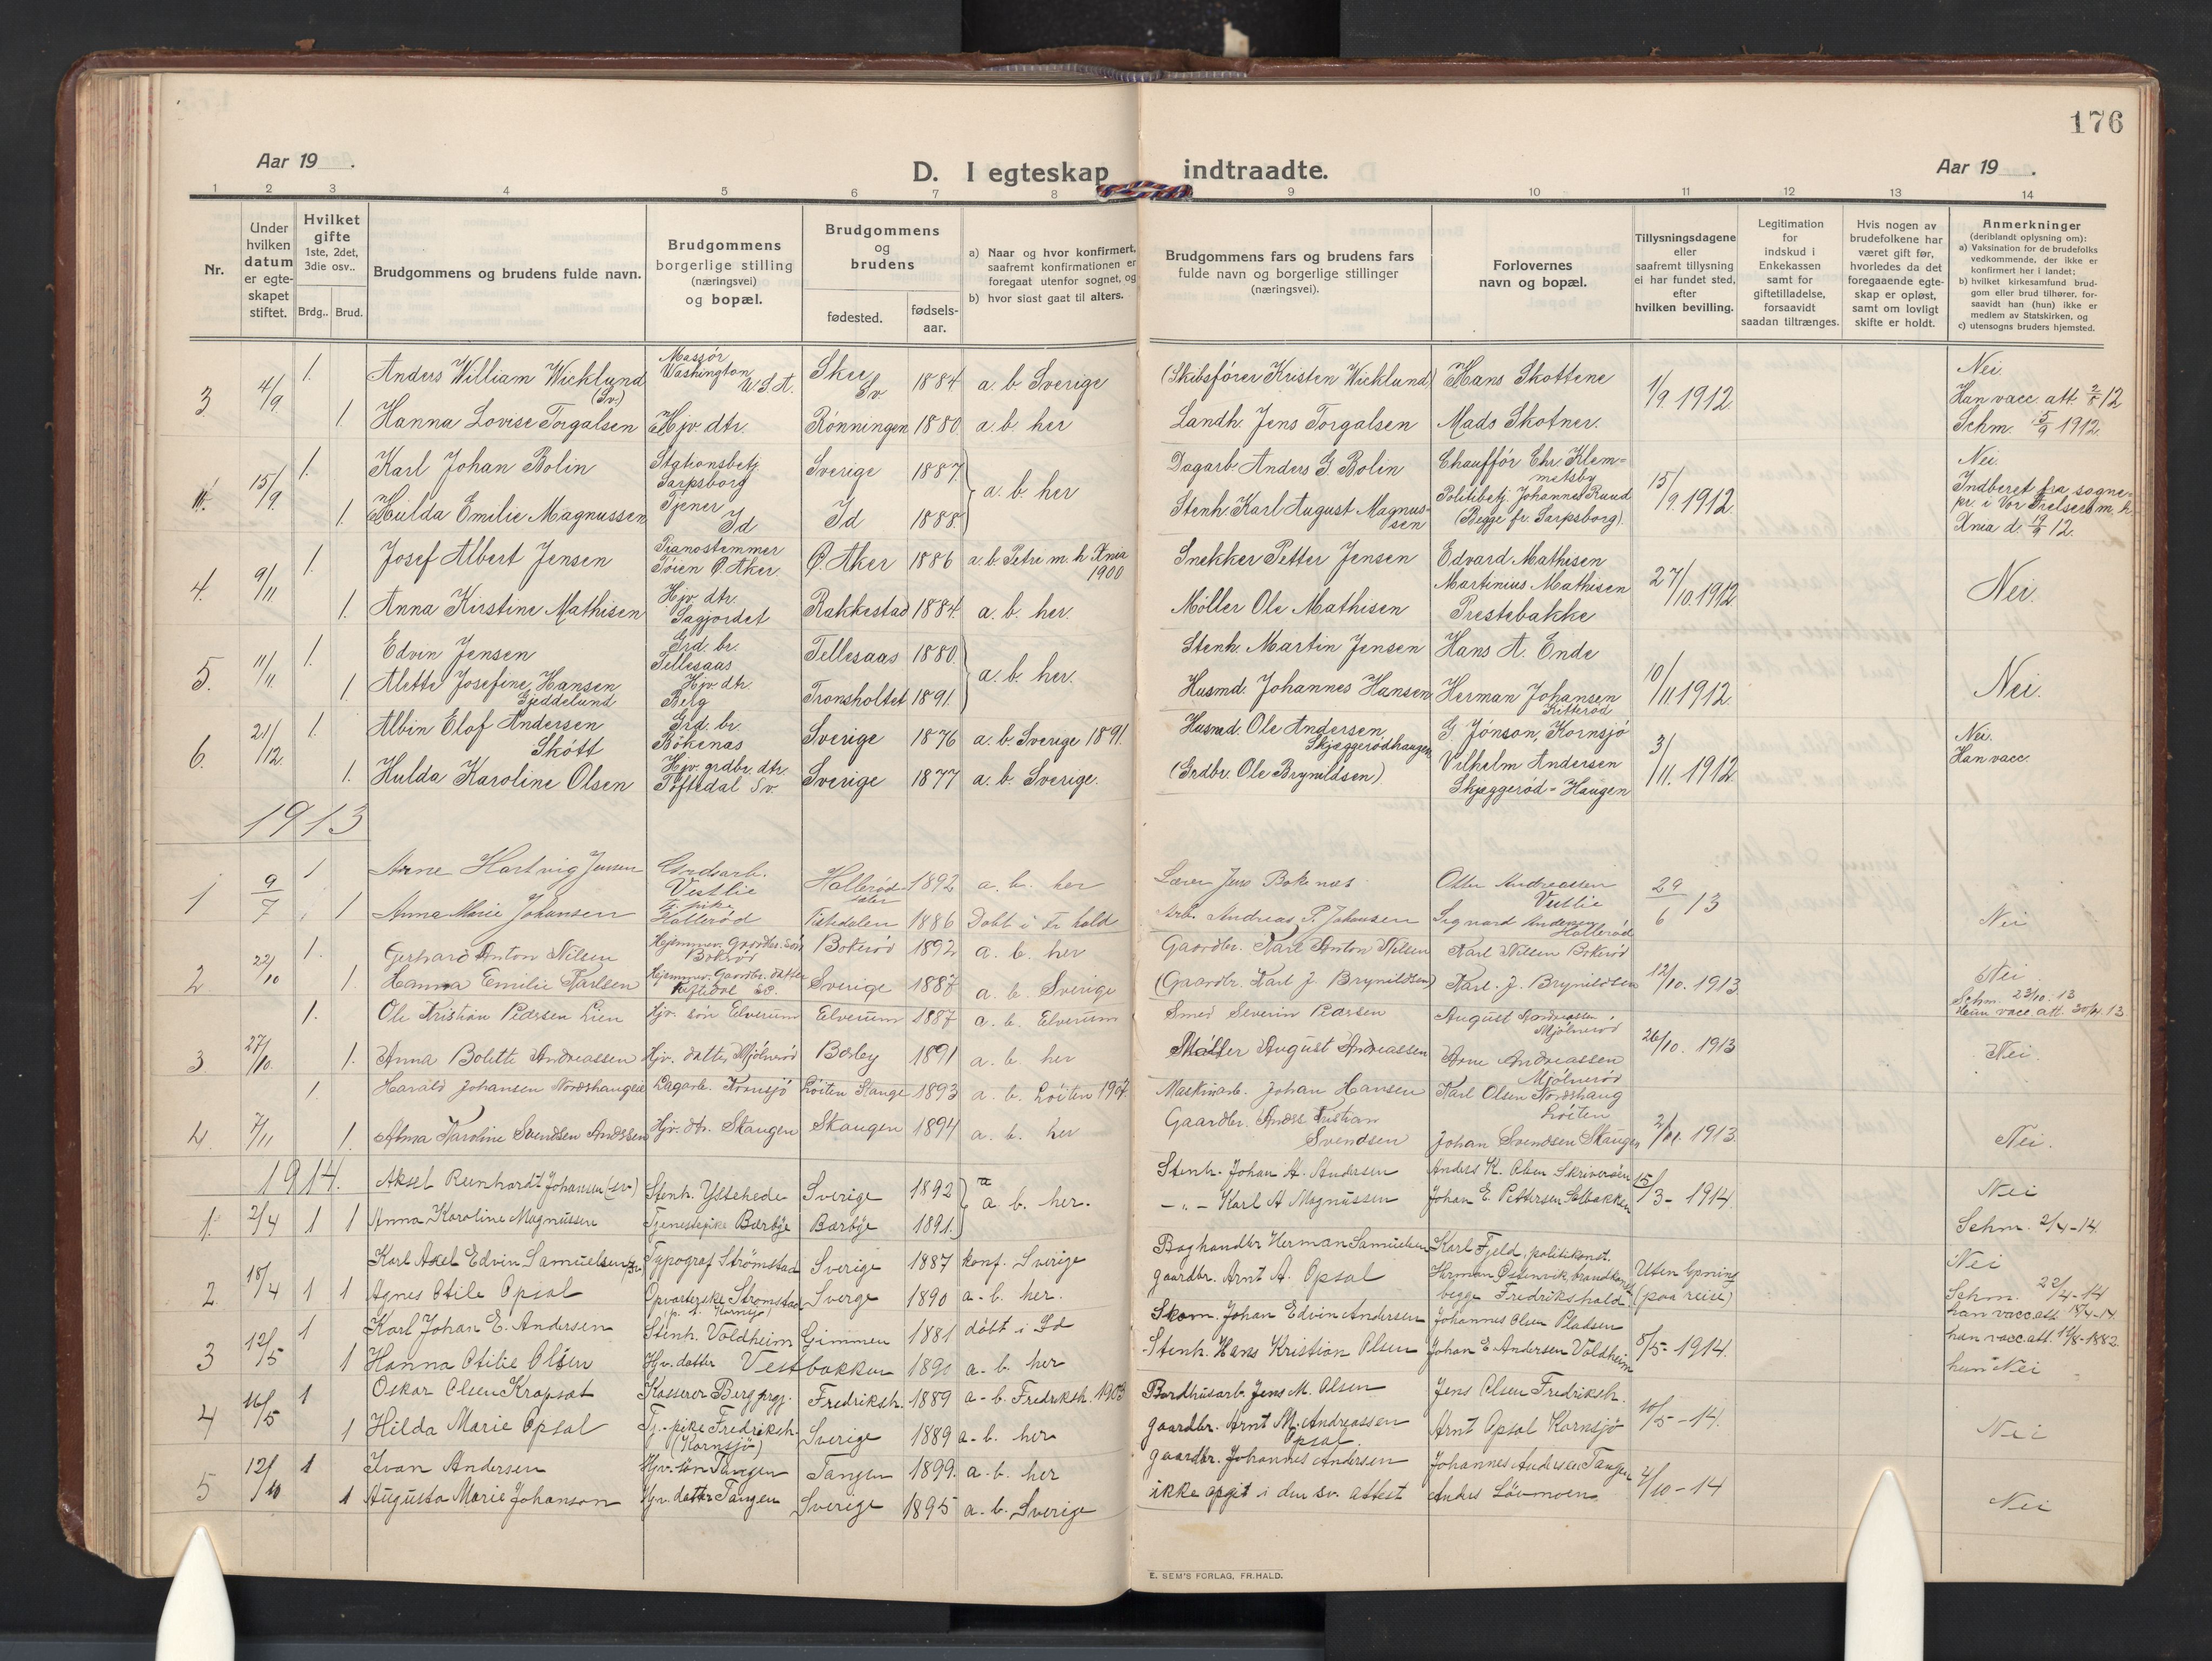 176
Aar 19 .
D. I egteskap indtraadte.
Aar 19 .
1 2 3 4 5 6 7 8 9 10 11 12 13 14
Nr.
Under hvilken datum er egteskapet stiftet.
Hvilket gifte 1ste, 2det, 3die osv..
Brdg.. Brud.
Brudgommens og brudens fulde navn.
Brudgommens borgerlige stilling (næringsvei) og bopæl.
Brudgommens og brudens
fødested. fødsels-aar.
a) Naar og hvor konfirmert, saafremt konfirmationen er foregaat utenfor sognet, og
b) hvor sidst gaat til alters.
Brudgommens fars og brudens fars fulde navn og borgerlige stillinger (næringsvei).
Forlovernes navn og bopæl.
Tillysningsdagene eller saafremt tillysning ei har fundet sted, efter hvilken bevilling.
Legitimation for indskud i Enkekassen samt for giftetilladelse, forsaavidt saadan tiltrænges.
Hvis nogen av brudefolkene har været gift før, hvorledes da det foregaaende egteskap er opløst, samt om lovligt skifte er holdt.
Anmerkninger
(deriblandt oplysning om):
a) Vaksination for de brudefolks vedkommende, der ikke er konfirmert her i landet;
b) hvilket kirkesamfund brudgom eller brud tilhører, forsaavidt han (hun) ikke er medlem av Statskirken, og
c) utensogns bruders hjemsted.
3. 4/9. 1. Anders William Wicklund (Sv.) Massør Washington U.S.A. Skee Sv 1884 a. b. Sverige (Skibsfører Kristen Wicklund) Hans Skottene 1/9. 1912. Nei. Han vacc. att. 2/8 12
1. Hanna Lovise Torgalsen Hjv. dtr. Rønningen 1880 a. b. her Landh. Jens Torgalsen Mads Skotner. Schm. 5/9 1912.
15/9. 1. Karl Johan Bolin Stationsbetj. Sarpsborg Sverige 1887. a. b. her Dagarb. Anders G Bolin Chauffør Chr. Klemmetsby 15/9. 1912. Nei.
1. Hulda Emilie Magnussen Tjener Id Id 1888. Stenh. Karl August Magnussen Politibetj. Johannes Ruud (Begge fr. Sarpsborg). Indberet fra sognepr. i Vor Frelsers m. h. Xnia d. 19/9 12.
4. 9/11 1. Josef Albert Jensen Pianostemmer Tøien Ø. Aker Ø. Aker 1886 a. b. Petri m. h Xnia 1900 Snekker Petter Jensen Edvard Mathisen 27/10. 1912. Nei.
1. Anna Kirstine Mathisen Hjv. dtr. Sagjordet Rakkestad 1884. a. b. her. Møller Ole Mathisen Martinius Mathisen Prestebakke
5. 11/11. 1. Edvin Jensen Grd. br. Tellesaas Tellesaas 1880. a. b. her. Stenh. Martin Jensen Hans A. Ende 10/11. 1912. Nei.
1. Alette Josefine Hansen Gjeddelund Hjv. dtr. Berg Tronsholtet 1891. Husmd. Johannes Hansen Herman Johansen Kitterød
6. 21/12. 1. Albin Elof Andersen Skött Grd. br. Bökenas Sverige 1876 a. b. Sverige 1891. Husmd. Ole Andersen, Skjæggerødhaugen G. Jónson, Kornsjö 3/11. 1912 Nei. Han vacc.
1. Hulda Karoline Olsen Hjv. grdbr. dtr. Töftedal Sv. Sverige 1877 a. b. Sverige. (Grdbr. Ole Brynildsen) Vilhelm Andersen Skjæggerød-Haugen
1913
1 9/7 1 Arne Hartvig Jensen Gardsarb. Vestlie Hallerød 1892 a. b. her Lærer Jens Bokenæs Otter Andreassen Vestlie 29/6 13 Nei
1 Anna Marie Johansen Tj. pike Hallerød Tistedalen 1886 Døbt i Fr.hald Arb. Andreas P. Johansen Sigvard Andersen Hallerød
2 22/10 1. Gerhard Anton Nilsen Hjemmev. gaardbr. søn Bokerød Bokerød 1892 a. b. her Gaardbr. Karl Anton Nilsen Karl Nilsen Bokerød 12/10. 1913 Nei
1. Hanna Emilie Karlsen Hjemmev. Gaardbr. datter Töftedal Sv. Sverige 1887 a. b. Sverige (Gaardbr. Karl J. Brynildsen) Karl. J. Brynildsen Schm. 23/10. 13 Hun vacc. att. 30/4. 13
3 27/10. 1. Ole Kristian Pedersen Lien Hjv. søn Elverum Elverum 1887 a. b. Elverum Smed Severin Pedersen August Andreassen Mjölnerød 26/10. 1913 Nei.
1. Anna Bolette Andreassen Hjv. datter Mjölnerød Bøsby 1891 a. b. her Møller August Andreassen Arne Andreassen Mjölnerød
4 7/11 1. Harald Johansen Nordshaugeie Dagarb. Kornsjö Löiten Stange 1893 a. b. Löiten 1907. Maskinarb. Johan Hansen Karl Olsen Nordshaug Löiten 2/11. 1913. Nei.
1. Alma Karoline Svendsen Andersen Hjv. dtr. Skaugen Skaugen 1894 a. b. her Gaardbr. Anders Kristian Svendsen Johan Svendsen Skaugen
1914.
1. 2/4 1 1 Aksel Reinhardt Johansen (sv) Stenh. Ystehede Sverige 1892 a. b. her. Stenh. Johan A. Andersen Anders K. Olsen Skriverøen 15/3 - 1914. Nei
Anna Karoline Magnussen Tjenestepike Bærbÿe Bærbÿe 1891. -"- Karl A Magnussen Johan E. Pettersen Elbakken Schm. 2/4-14.
2. 18/4 1 1 Karl Axel Edvin Samuelsen (Sv) Typograf Strömstad Sverige 1887 konf. Sverige Boghandler Herman Samuelsen Karl Fjeld, politikonst. Uten lysning (paa reise) Nei
Agnes Otile Opsal Opvarterske Strömstad p. t. Kornsjö Sverge 1890 a. b. her. gaardbr. Arnt A. Opsal Herman Østenvik, brandkonst. begge Fredrikshald Schm. 22/4-14 han vacc.att. 18/4-14.
3 12/5 1 Karl Johan E. Andersen Stenh. Voldheim Gimmen 1881 döbt i Id Skom. Johan Edvin Andersen Johannes Olsen Pladsen 8/5 - 1914. han vacc.att. 12/8-1882.
1 Hanna Otilie Olsen Hjv. datter Vestbakken 1890 a. b. her Stenh. Hans Kristian Olsen Johan E Andersen Voldheim hun Nei
4 16/5 1 Oskar Olsen Krapsat Kasserer Berg prgj. Fredriksh. 1889 a-b. Fredriksh. 1903 Bordhusarb. Jens M. Olsen Jens Olsen Fredriksh. 10/5 - 14. Nei
1 Hilda Marie Opsal Tj.-pike Fredriksh. (Kornsjö) Sverige 1889 a-b. her gaardbr. Arnt M. Andreassen Opsal. Arnt Opsal Kornsjö
5 12/10 1 Ivan Andersen Hjv. søn Tangen Tangen 1899. a-b. her gaardbr. Johannes Andersen Johannes Andersen Tangen 4/10 - 14 Nei
1 Augusta Marie Johanson Hjv. datter Tangen Sverige 1895 a-b. Sverige ikke opgit i den sv. attest Anders Lövmoen
E. SEM'S FORLAG, FR.HALD.